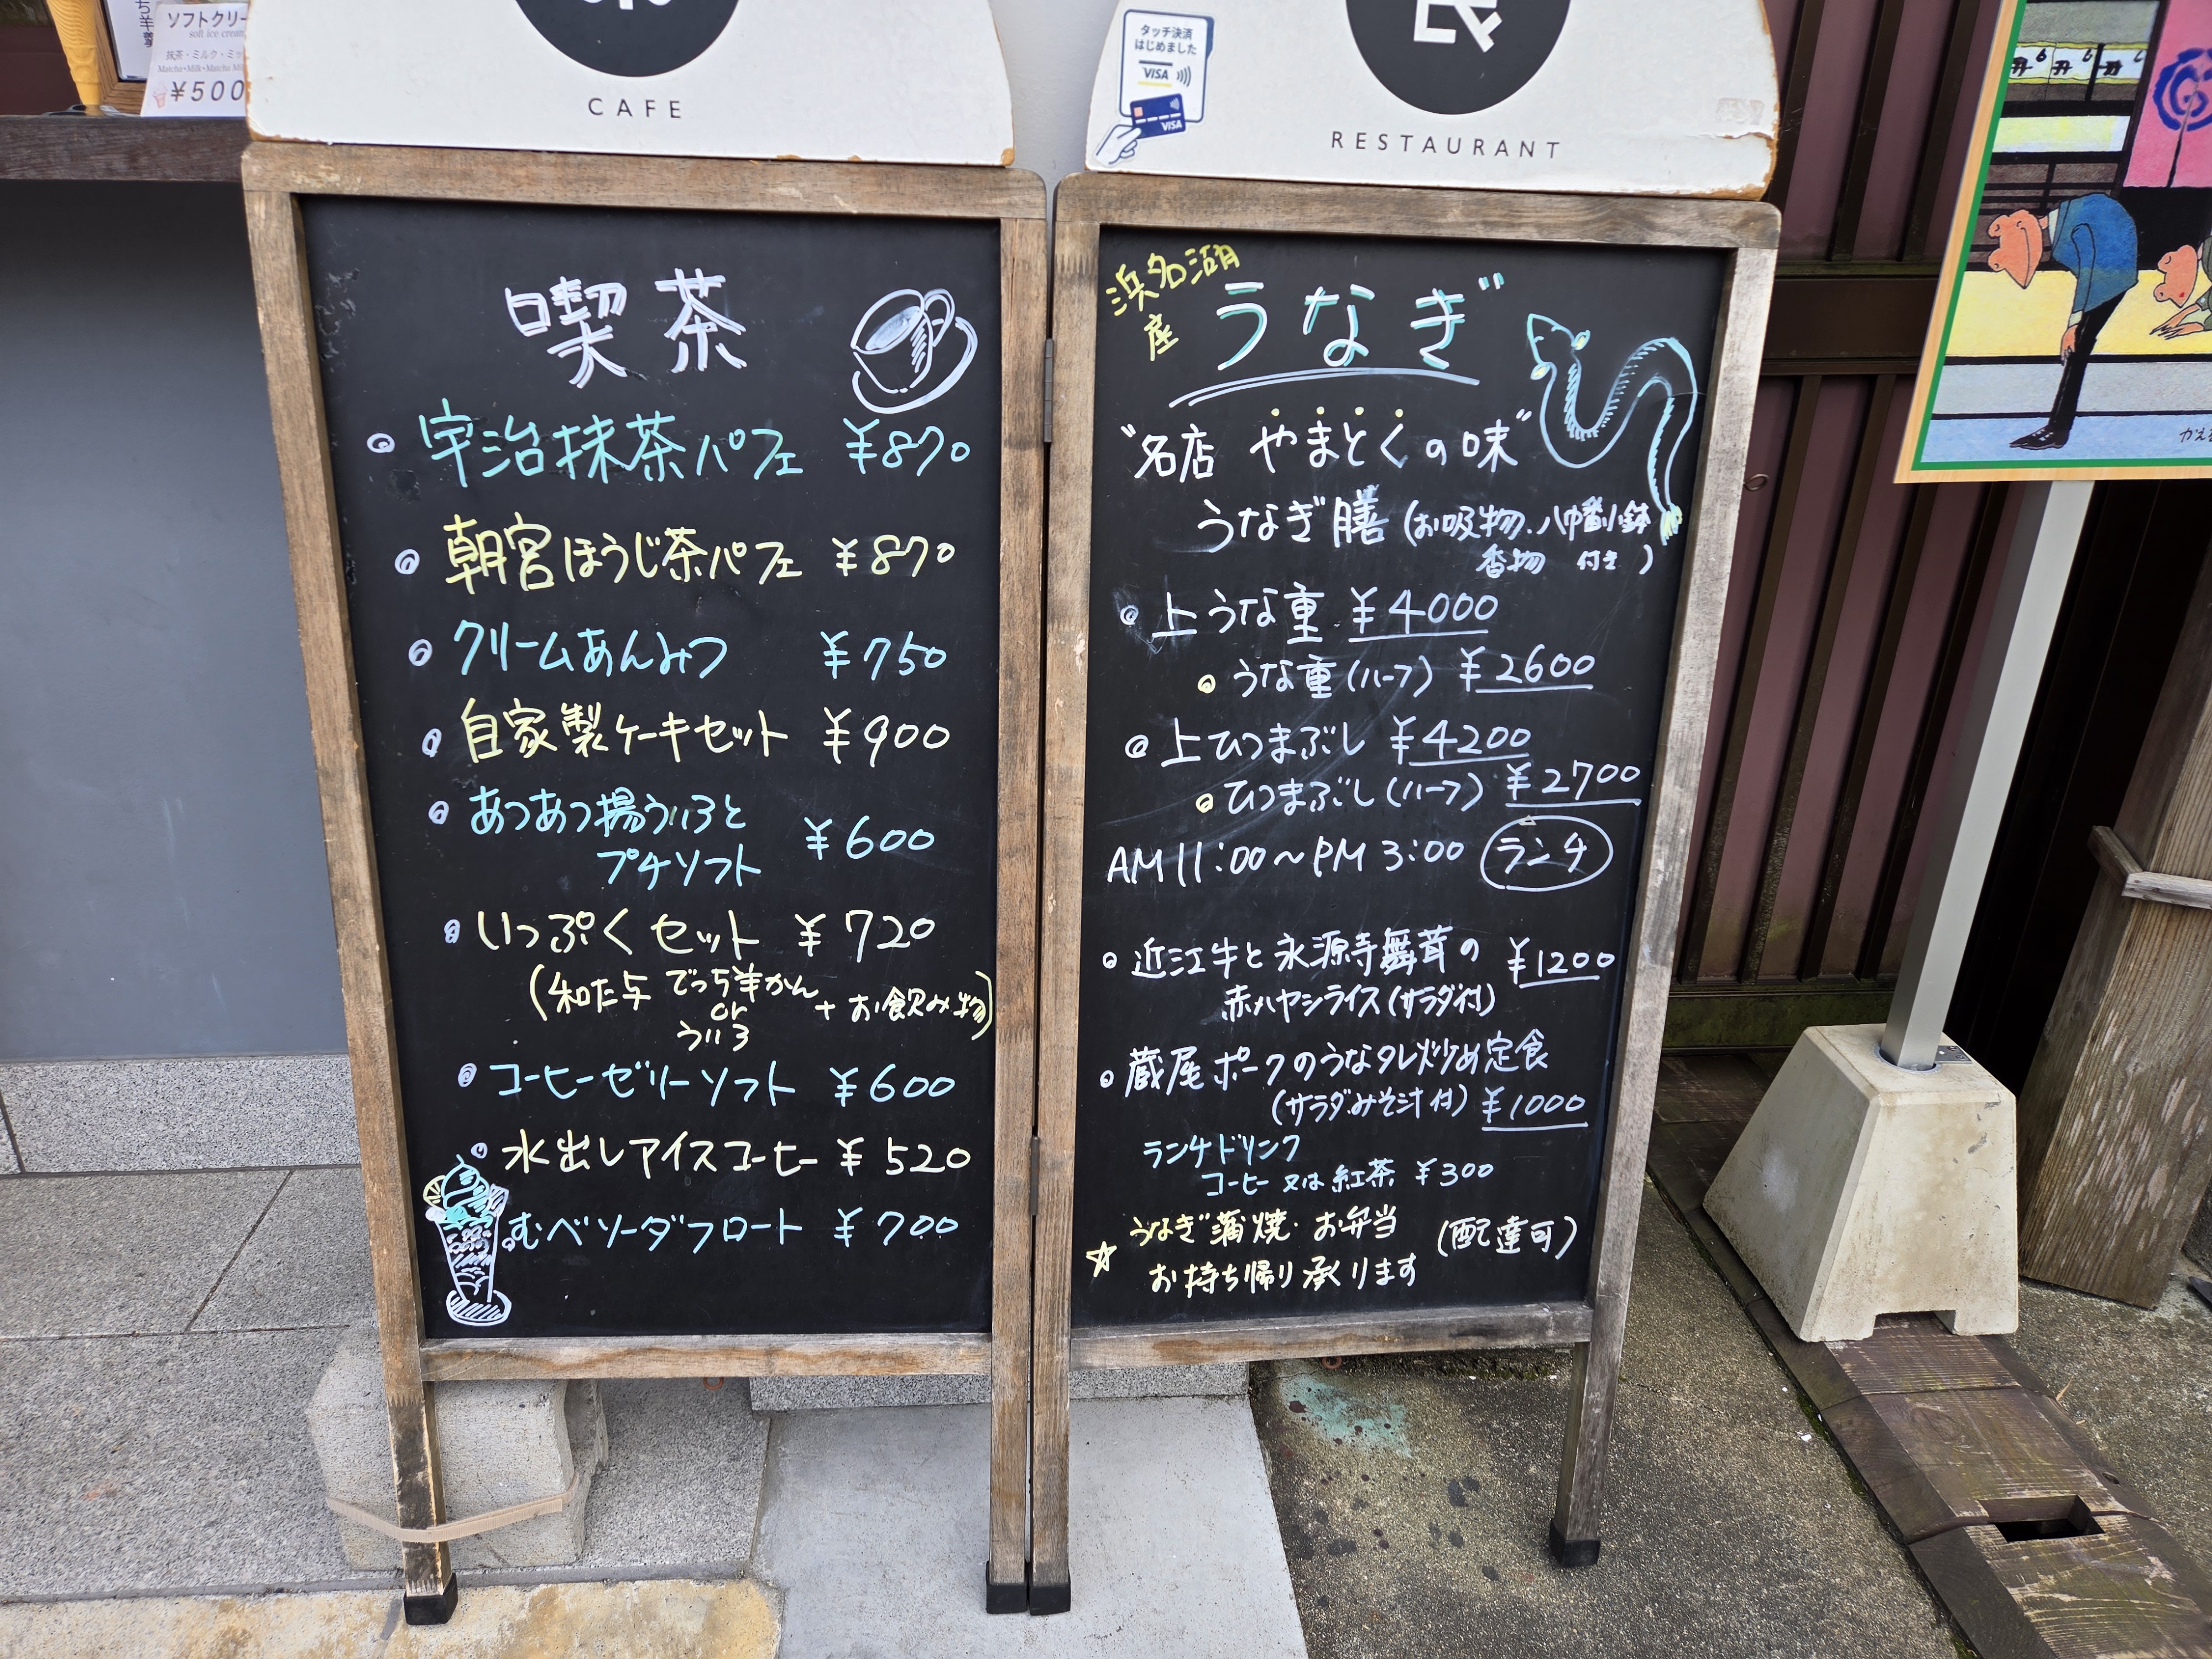 ソフトクリー
soft ice cream
抹茶・ミルク・ミッ
Matcha・Milk・Matcha Mi
¥500
CAFE
喫茶
宇治抹茶パフェ ¥870
朝宮ほうじ茶パフェ ¥870
クリームあんみつ ¥750
自家製ケーキセット ¥900
あつあつ揚ういろと
プチソフト ¥600
いっぷくセット ¥720
(和た与 でっち羊かん
or + お飲み物)
ういろ
コーヒーゼリーソフト ¥600
水出しアイスコーヒー ¥520
むべソーダフロート ¥700
タッチ決済
はじめました
VISA
VISA
RESTAURANT
浜名湖
産
うなぎ
"名店 やまとくの味"
うなぎ膳(お吸物、八幡小鉢
香物 付き)
上うな重 ¥4000
うな重(ハーフ) ¥2600
上ひつまぶし ¥4200
ひつまぶし(ハーフ) ¥2700
AM11:00~PM3:00 ランチ
近江牛と永源寺舞茸の ¥1200
赤ハヤシライス(サラダ付)
蔵尾ポークのうなタレ炒め定食
(サラダみそ汁付) ¥1000
ランチドリンク
コーヒー又は紅茶 ¥300
☆うなぎ蒲焼・お弁当 (配達可)
お持ち帰り承ります